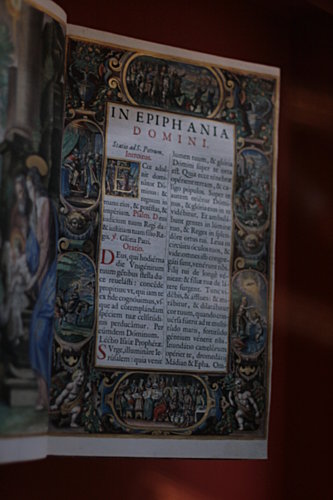 IN EPIPHANIA
DOMINI.
Statio ad S. Petrum.
Introitus.
Cce adué
nit domi
nator Do
minus: &
regnum in
manu eius, & potestas, &
imperium. Psalm. Deus
iudicium tuum Regi da:
& iustitiam tuam filio Re-
gis. ℣. Gloria Patri.
Oratio.
Deus, qui hodierna
die Vnigenitum
tuum gentibus stella du-
ce reuelasti: concede
propitius, vt, qui iam te
ex fide cognouimus, vs-
que ad contemplandam
speciem tuæ celsitudi-
nis perducamur. Per
eumdem Dominum.
Lectio Isaiæ Prophetæ.
Surge, illuminare Ie-
rusalem: quia venit
lumen tuum, & gloria
Domini super te orta
est. Quia ecce tenebræ
operient terram, & ca-
ligo populos. Super te
autem orietur Domi-
nus, & gloria eius in te
videbitur. Et ambula-
bunt gentes in lumine
tuo, & Reges in splen-
dore ortus tui. Leua in
circuitu oculos tuos, &
vide: omnes isti congre-
gati sunt, venerunt tibi.
Filij tui de longè ve-
nient: & filiæ tuæ de la-
tere surgent. Tunc vi-
debis, & afflues: & mi-
rabitur, & dilatabitur
cor tuum, quando con-
uersa fuerit ad te multi-
tudo maris, fortitudo
gentium venerit tibi.
Inundatio camelorum
operiet te, dromedarij
Madian & Epha. Om-